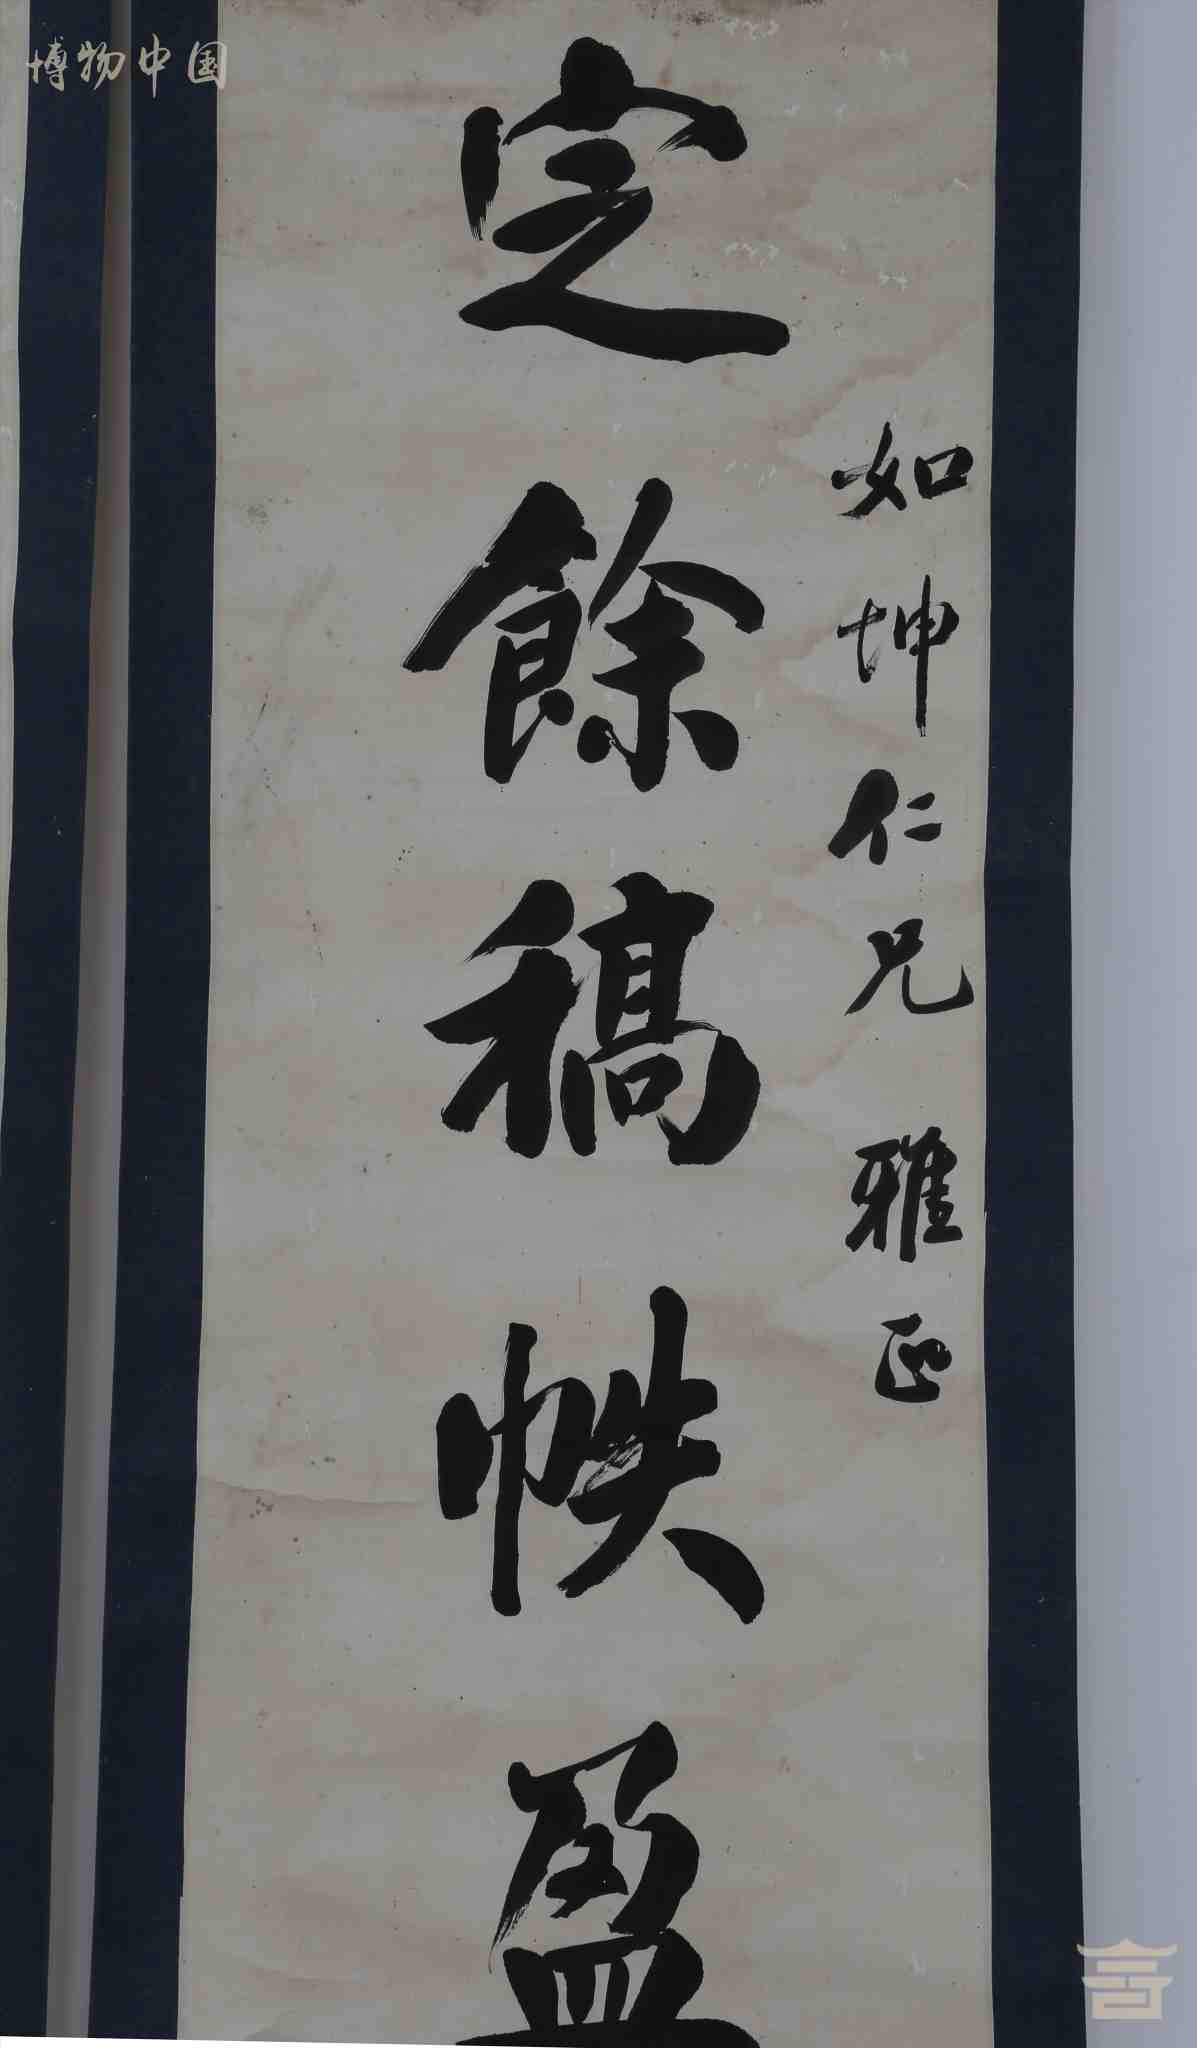 博物中国
如坤仁兄雅正
定餘稿帙盈